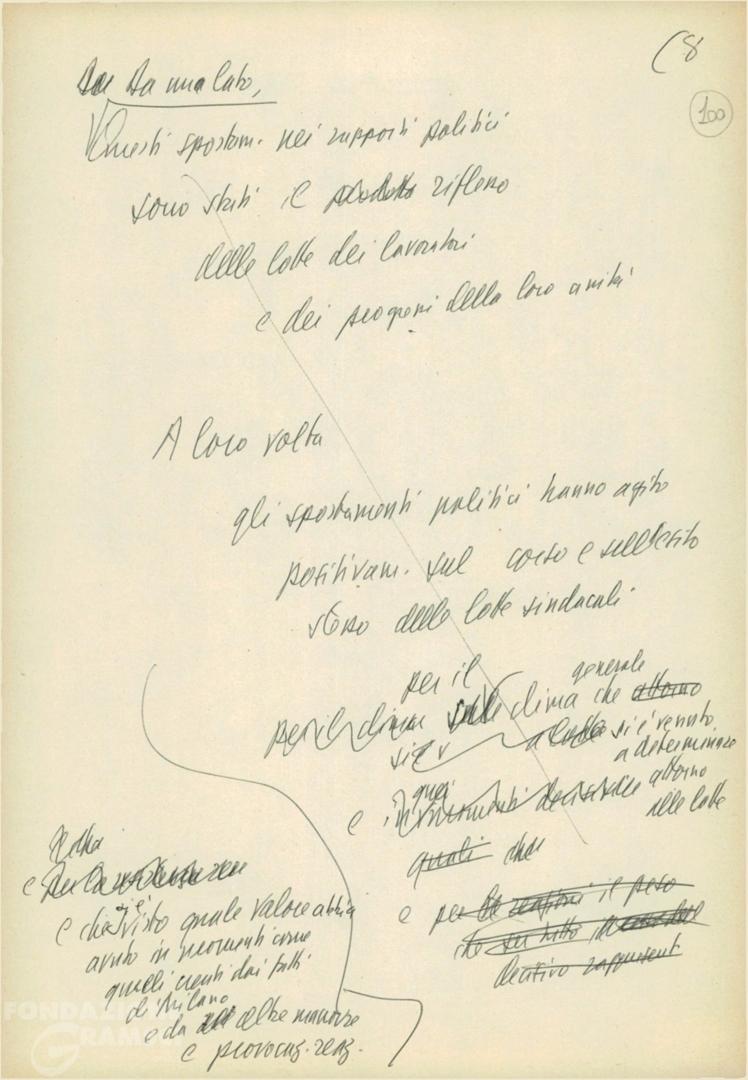 (8
100
Da un lato,
Questi spostam. nei rapporti politici
sono stati e prodotto riflesso
delle lotte dei lavoratori
e dei progressi della loro unità
A loro volta
gli spostamenti politici hanno agito
positivam. sul corso e sull'esito
stesso delle lotte sindacali
per il generale
per il clima clima che attorno
si è venuto
a determinare
e in quei momenti attorno
alle lotte
quali che
e per le reazioni il peso
che
decisivo rappresent
e
e che si è visto quale valore abbia
avuto in momenti come
quelli creati dai fatti
di Milano
e da altre manovre
e provocaz. reaz.
FONDAZIONE
GRAMSCI